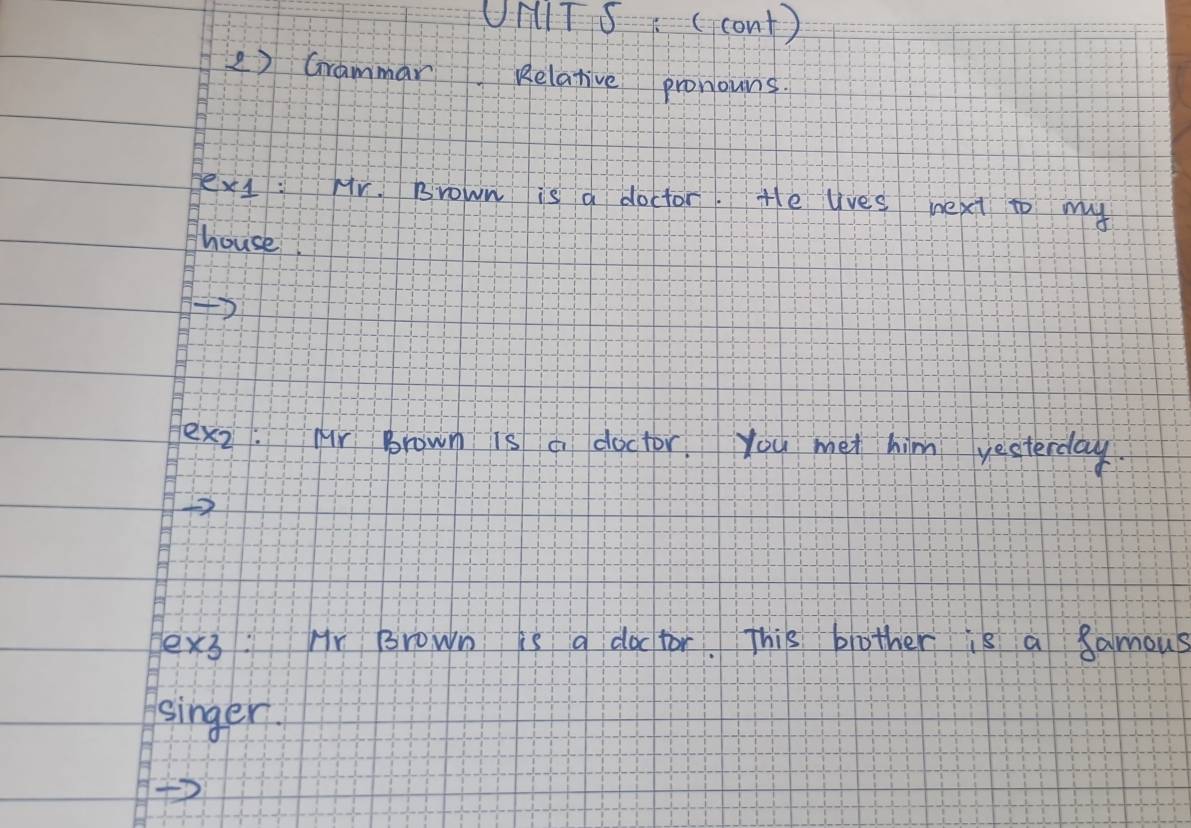 UNIT 5 : (cont)
2) Grammar . Relative pronouns.
ex1 : Mr. Brown is a doctor. He lives next to my
house.
→
ex2 : Mr Brown is a doctor. You met him yesterday.
→
ex3 : Mr Brown is a doctor. This brother is a famous
singer.
→